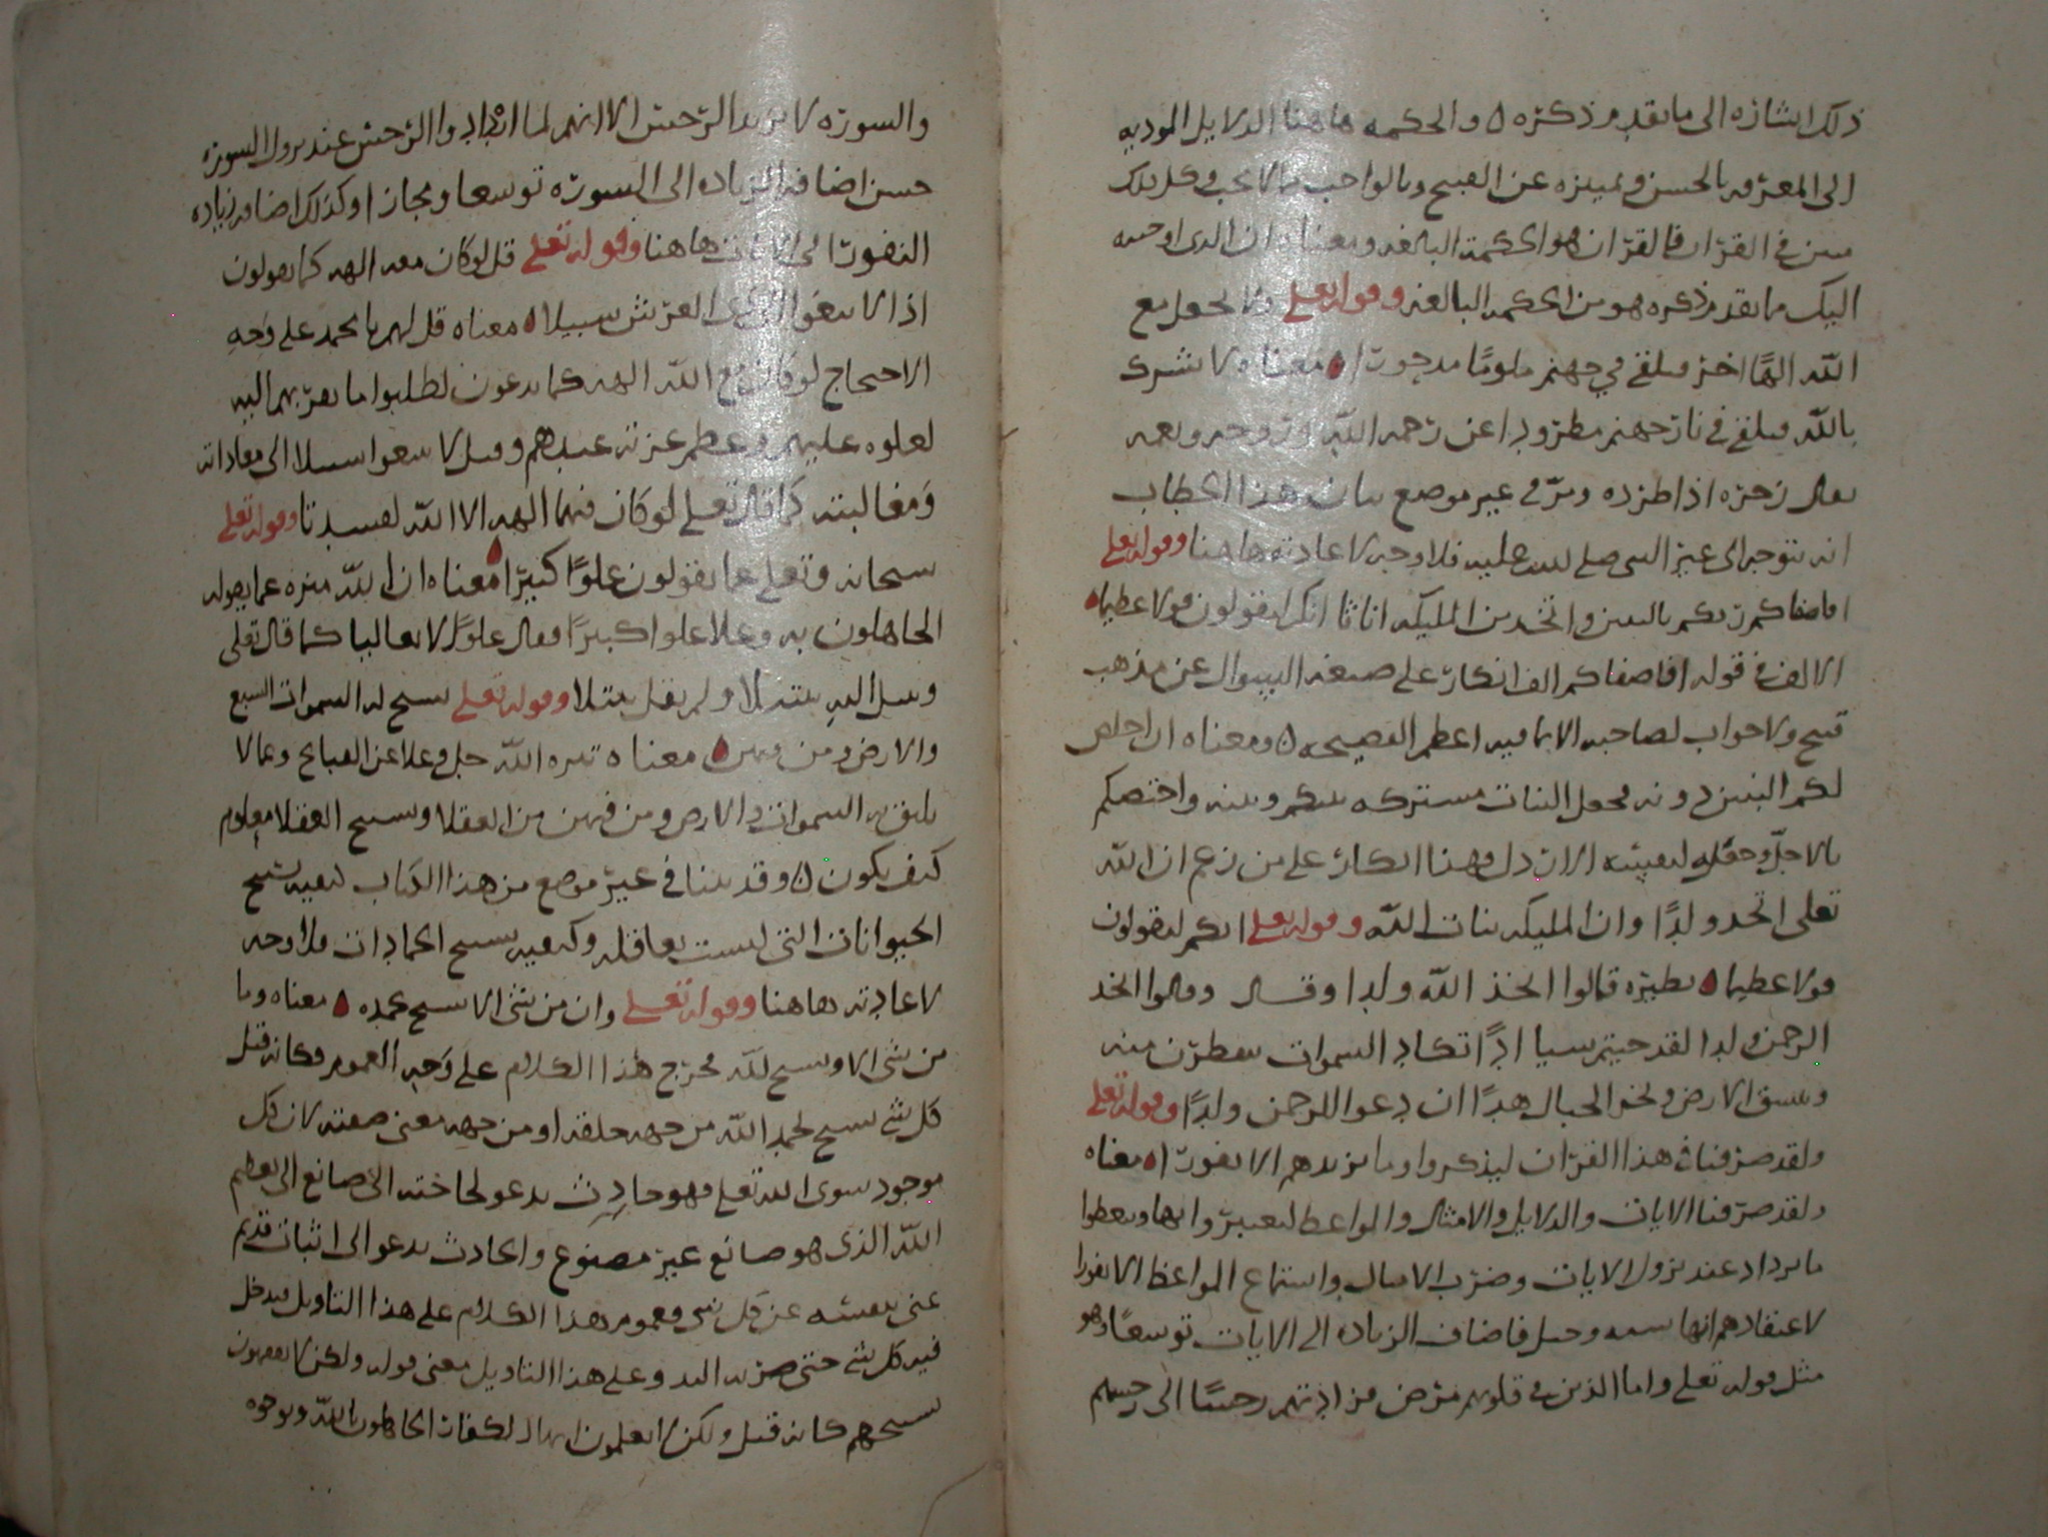 ذلك اشاره الى ما تقدم ذكره ه والحكمه هاهنا الدلايل المودیه
الى المعرفه بالحسن وتمييزه عن القبيح وبالواجب مما لا يجب وكل ذلك
مبين في القران فالقران هو الحكمة البالغه ومعناه ان الذى اوحیه
اليك ما تقدم ذكره هو من الحكمه البالغه وقوله تعلى ولا تجعل مع
الله الهًا اخر فتلقى في جهنم ملومًا مدحورًا معناه لا تشرك
بالله فتلقى في نار جهنم مطرودا عن رحمه الله وروحه ونعمه
يقال زحره اذا طرده ومرّ في غير موضع بيان هذا الخطاب
انه يتوجه الى غير النبي صلى الله عليه فلا وجه لاعادته هاهنا وقوله تعلى
افاصفاكم ربكم بالبنين واتخذ من المليكه اناثا انكم لتقولون قولا عظيما
الالف في قوله افاصفاكم الف انكار على صيغه السوال عن مذهب
قبيح ولا جواب لصاحبه الا بما فيه اعظم الفضيحه ه ومعناه ان اخلص
لكم البنين دونه فجعل البنات مشتركه بينكم وبينه واختصكم
بالاجلّ وجعله لنفسه الادون فهذا انكار على من زعم ان الله
تعلى اتخذ ولدًا وان المليكه بنات الله وقوله تعلى انكم لتقولون
قولا عظيما نظيره قالوا اتخذ الله ولدا وقال وقالوا اتخذ
الرحمن ولدا لقد جيتم شيا ادًا تكاد السموات يتفطرن منه
وتنشق الارض وتخر الجبال هدًا ان دعوا للرحمن ولدًا وقوله تعلى
ولقد صرفنا في هذا القران ليذكروا وما يزيدهم الا نفورًا معناه
ولقد صرّفنا الايات والدلايل والامثال والمواعظ ليعتبروا بها ويتعظوا
ما يزداد عند نزول الايات وضرب الامثال واستماع المواعظ الا نفورا
لاعتقادهم انها شبه وحيل فاضاف الزياده الى الايات توسعًا وهو
مثل قوله تعلى واما الذين في قلوبهم مرض فزادتهم رجسًا الى رجسهم
والسوره لا تزيد الرجس الا انهم لما ازدادوا الرجس عند نزول السوره
حسن اضافه الزياده الى السوره توسعا ومجازا وكذلك اضافه زياده
النفور الى الايات هاهنا وقوله تعلى قل لو كان معه الهه كما يقولون
اذا لابتغوا الى ذي العرش سبيلا معناه قل لهم يا محمد على وَجهِ
الاحتجاج لو كان مع الله الهه كما يدعون لطلبوا ما يقربهم اليه
لعلوه عليهم وعظم عزته عندهم وقيل لابتغوا سبيلا الى معاداته
وَمغالبته كما قال تعلى لو كان فيهما الهه الا الله لفسدتا وقوله تعلى
سبحانه وتعلى عما يقولون علوًا كبيرًا معناه ان الله منزه عما يقوله
الجاهلون به وعلا علوا كبيرًا فقال علوًا لا تعاليا كما قال تعلى
وتبتل اليه تبتيلا ولم يقل تبتلا وقوله تعلى تسبح له السموات السبع
والارض ومن فيهن معناه تنزه الله جل وعلا عن القبايح وعما لا
يليق به السموات والارض ومن فيهن من العقلا وتسبيح العقلا معلوم
كيف يكون ه وقد بينا في غير موضع من هذا الكتاب كيفيه تسبيح
الحيوانات التى ليست بعاقله وكيفيه تسبيح الجمادات فلا وجه
لاعادته هاهنا وقوله تعلى وان من شى الا يسبح بحمده معناه وما
من شى الا ويسبح لله فخرج هذا الكلام على وَجهِ العموم فكانه قيل
كل شى يسبح بحمد الله من جهه خلقه او من جهه معنى صفته لان كل
موجود سوى الله تعلى فهو حادث يدعو لحاجته الى صانع الى تعظيم
الله الذى هو صانع غير مصنوع والحادث يدعو الى اثبات قديم
غنى بنفسه عن كل شى فعموم هذا الكلام على هذا التاويل يدخل
فيه كل شى حتى صرير الباب وعلى هذا التاويل معنى قوله ولكن لا تفقهون
تسبيحهم كانه قيل ولكن لا تعلمون ايها الكفار الجاهلون بالله وبوجوه